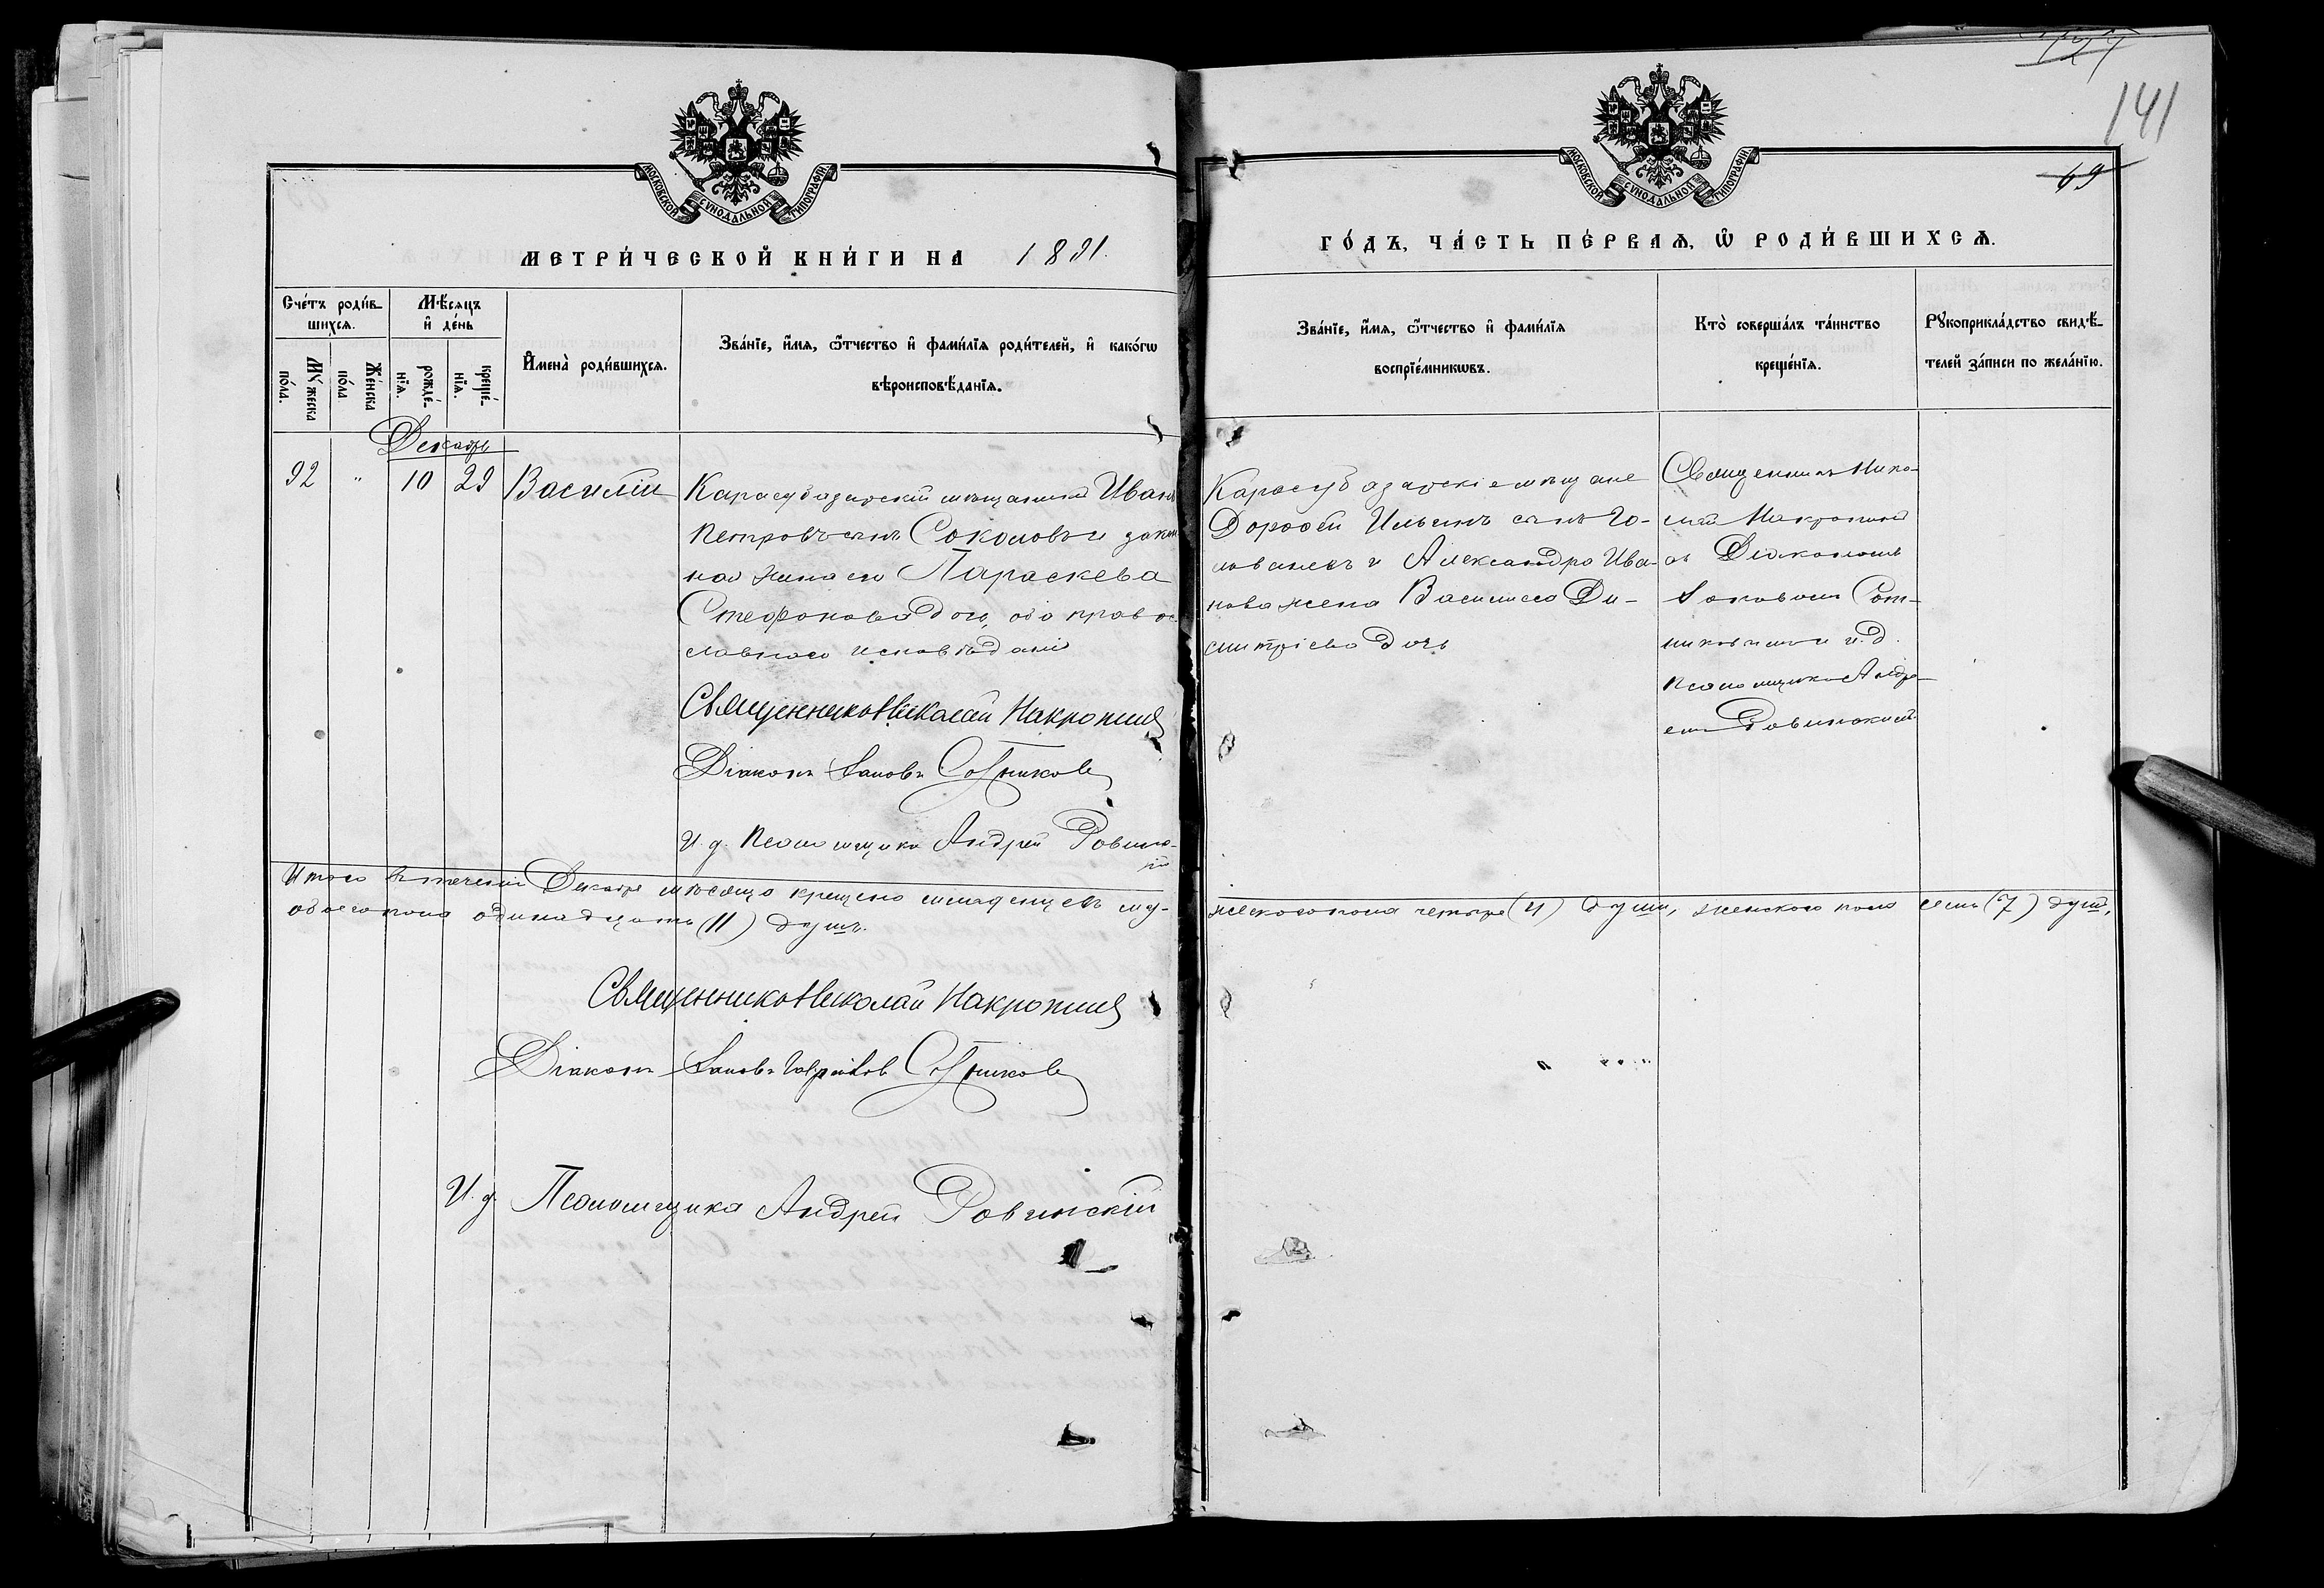 141
69
МОСКОВСКОЙ СѴНОДАЛЬНОЙ ТИПОГРАФІИ.
МОСКОВСКОЙ СѴНОДАЛЬНОЙ ТИПОГРАФІИ.
МЕТРИ́ЧЕСКОЙ КНИ́ГИ НА 1891.
ГО́ДЪ, ЧА́СТЬ ПЕ́РВАѦ, Ѡ҆ РОДИ́ВШИХСѦ.
Сче́тъ роди́в-
шихсѧ.
Мꙋ́жеска
по́ла.
Же́нска
по́ла.
Мѣ́сѧцъ
и҆ де́нь
рожде́-
нїѧ.
креще́-
нїѧ.
И҆мена̀ роди́вшихсѧ.
Зва́нїе, и҆́мѧ, ѻ҆́тчество и҆ фами́лїѧ роди́телей, и҆ како́гѡ
вѣроисповѣ́данїѧ.
Зва́нїе, и҆́мѧ, ѻ҆́тчество и҆ фами́лїѧ
воспрїе́мникѡвъ.
Кто̀ соверша́лъ та́инство
креще́нїѧ.
Рꙋкоприкла́дство свидѣ́-
телей за́писи по жела́нїю.
Декабрь
92 " 10 29 Василій
Карасубазарскій мѣщанинъ Иванъ
Петровъ сынъ Соколовъ и закон
ная жена его Параскева
Стефанова дочь, оба правос
славнаго исповѣданія
Священникъ Николай Макропиди
Діаконъ Іаковъ Сотниковъ
И. д. Псаломщика Андрей Ровинс-
кій
Карасубазарскіе мѣщане
Дорофей Ильинъ сынъ Го-
лованевъ и Александра Ива-
нова жена Василиса Ди-
митріева дочь
Священникъ Нико-
лай Макропиди
съ Діакономъ
Іаковомъ Сот-
никовымъ и и. д.
Псаломщика Андре-
емъ Ровинскимъ
Итого въ теченіи Декабря мѣсяца крещено младенцевъ му-
жескаго пола четыре (4) души, женскаго пола семь (7) душъ,
обоего пола одинадцать (11) душъ.
Священникъ Николай Макропиди
Діаконъ Іаковъ Сотниковъ
И. д. Псаломщика Андрей Ровинскій